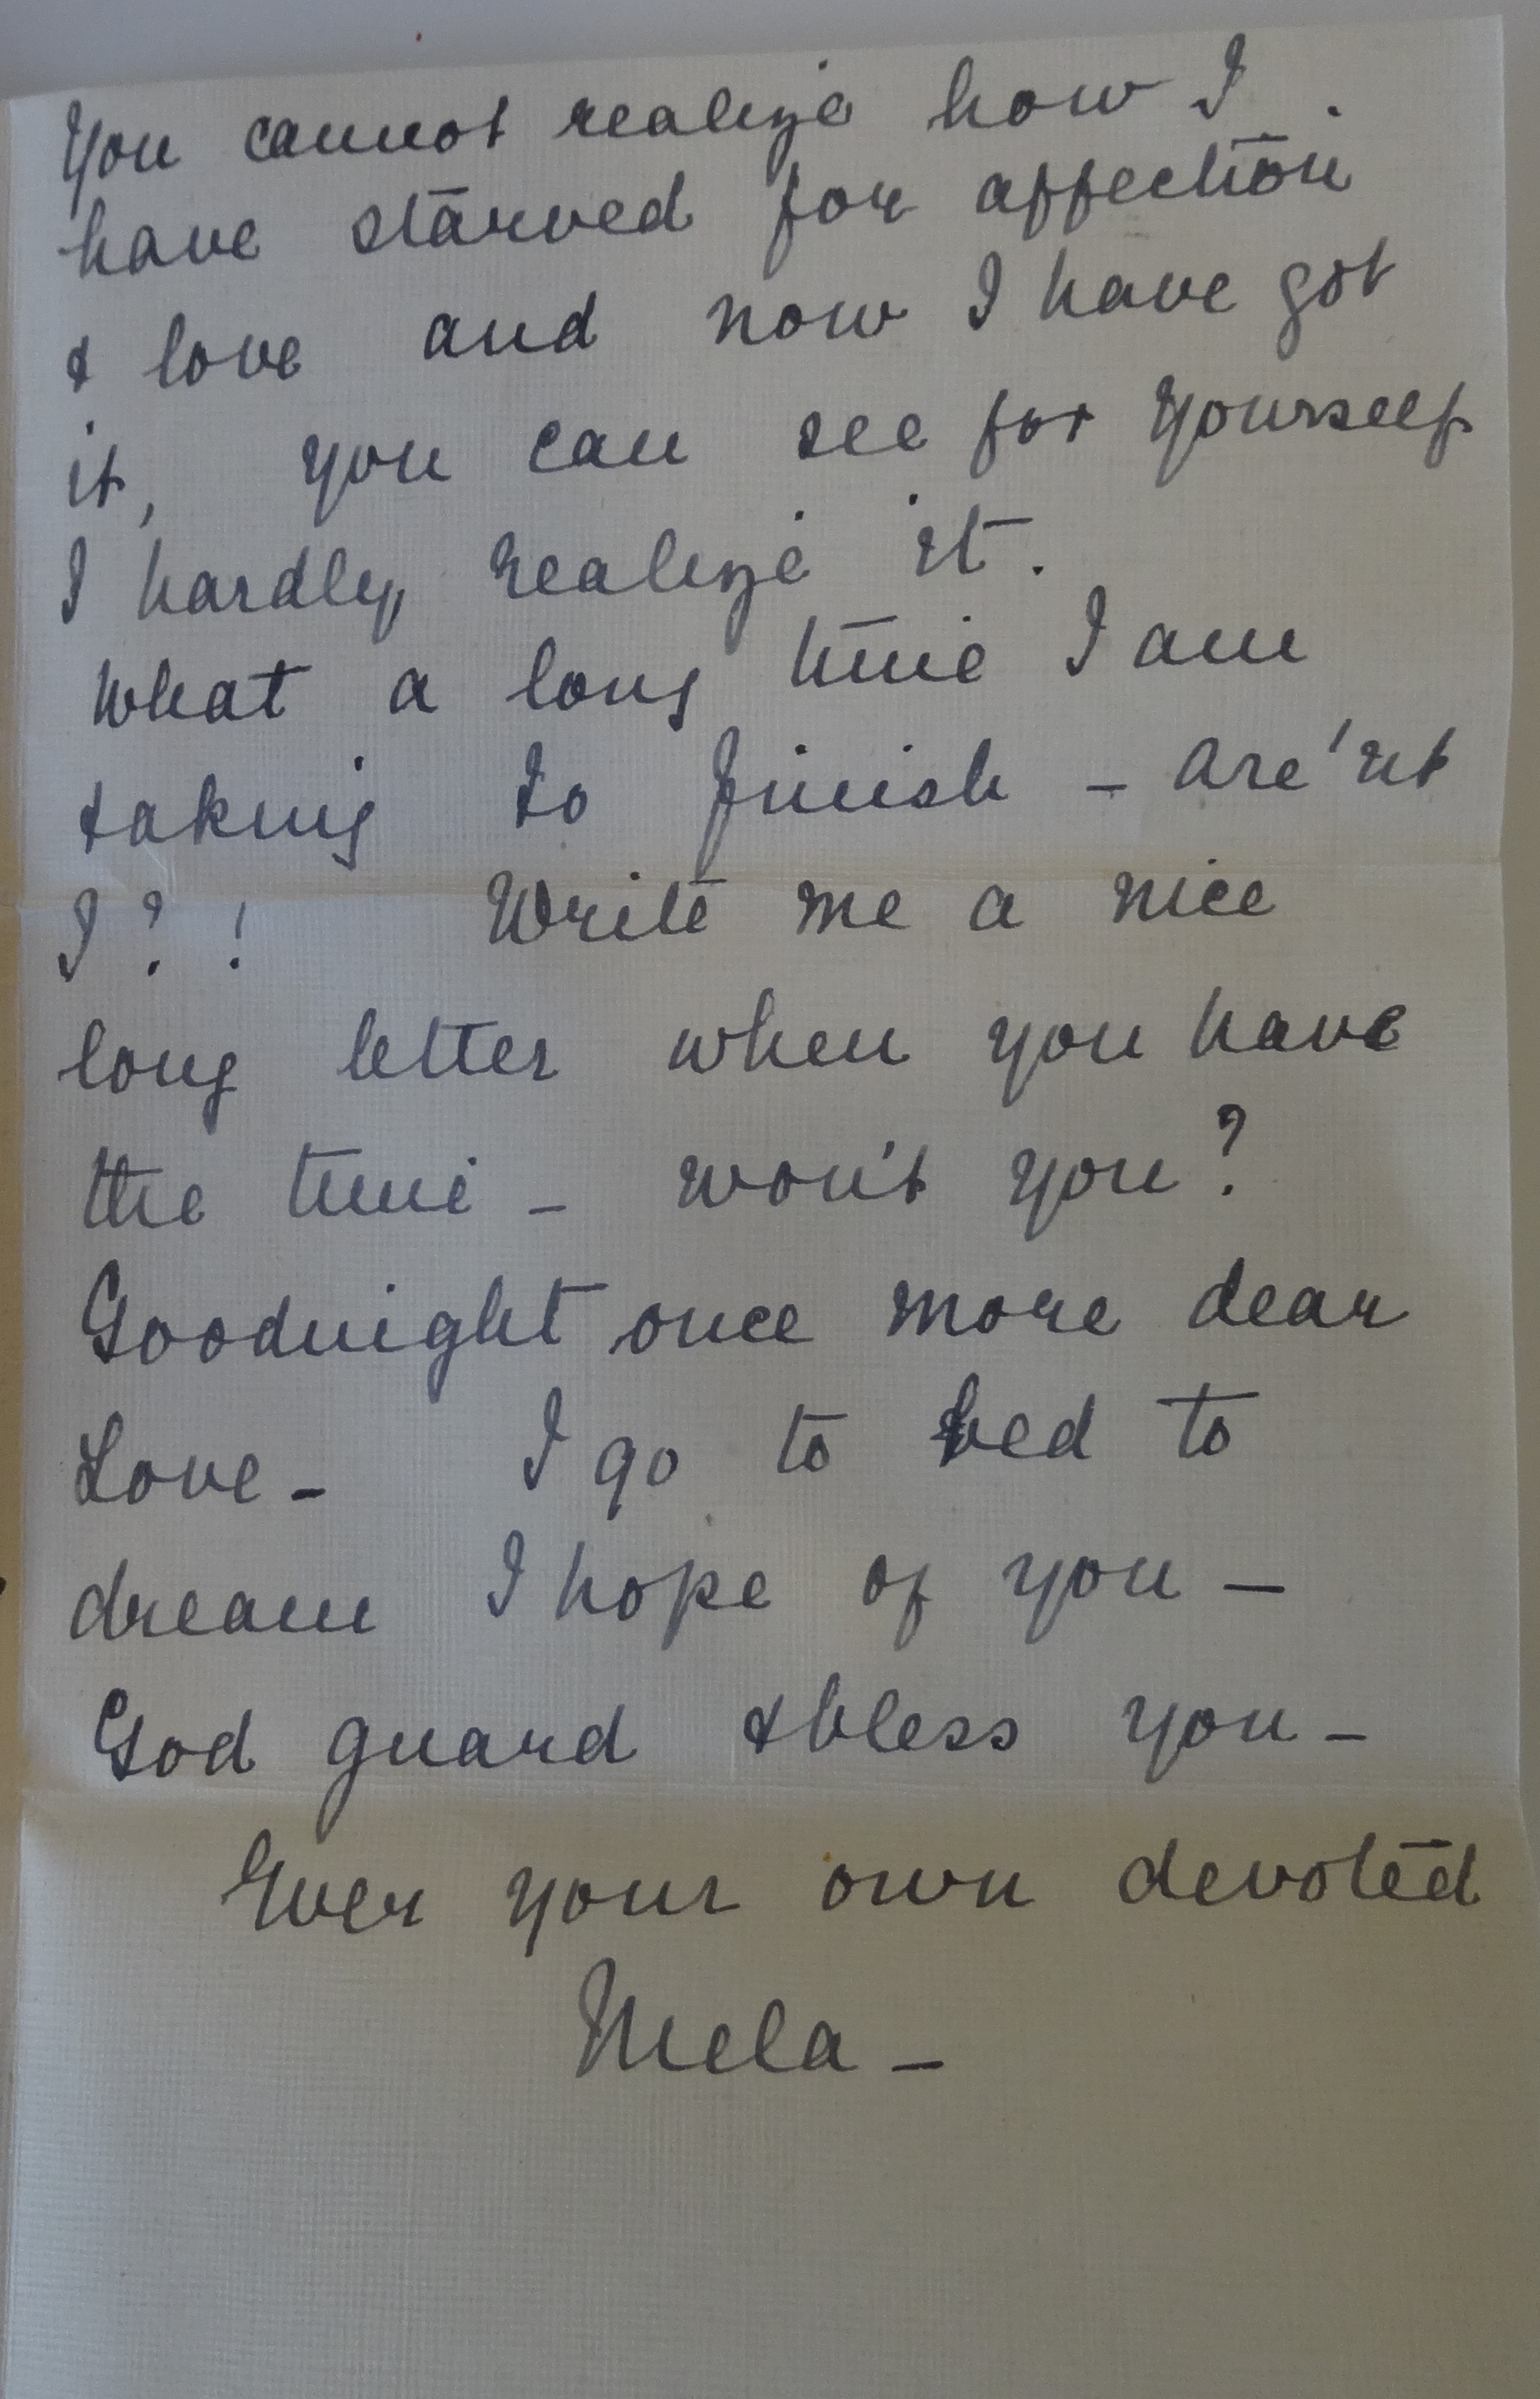 You cannot realize how I
have starved for affection
& love and now I have got
it, you can see for yourself
I hardly realize it.
What a long time I am
taking to finish - are'nt
I?! Write me a nice
long letter when you have
the time - won't you?
Goodnight once more dear
Love - I go to bed to
dream I hope of you -
God guard & bless you -
Ever your own devoted
Mela -